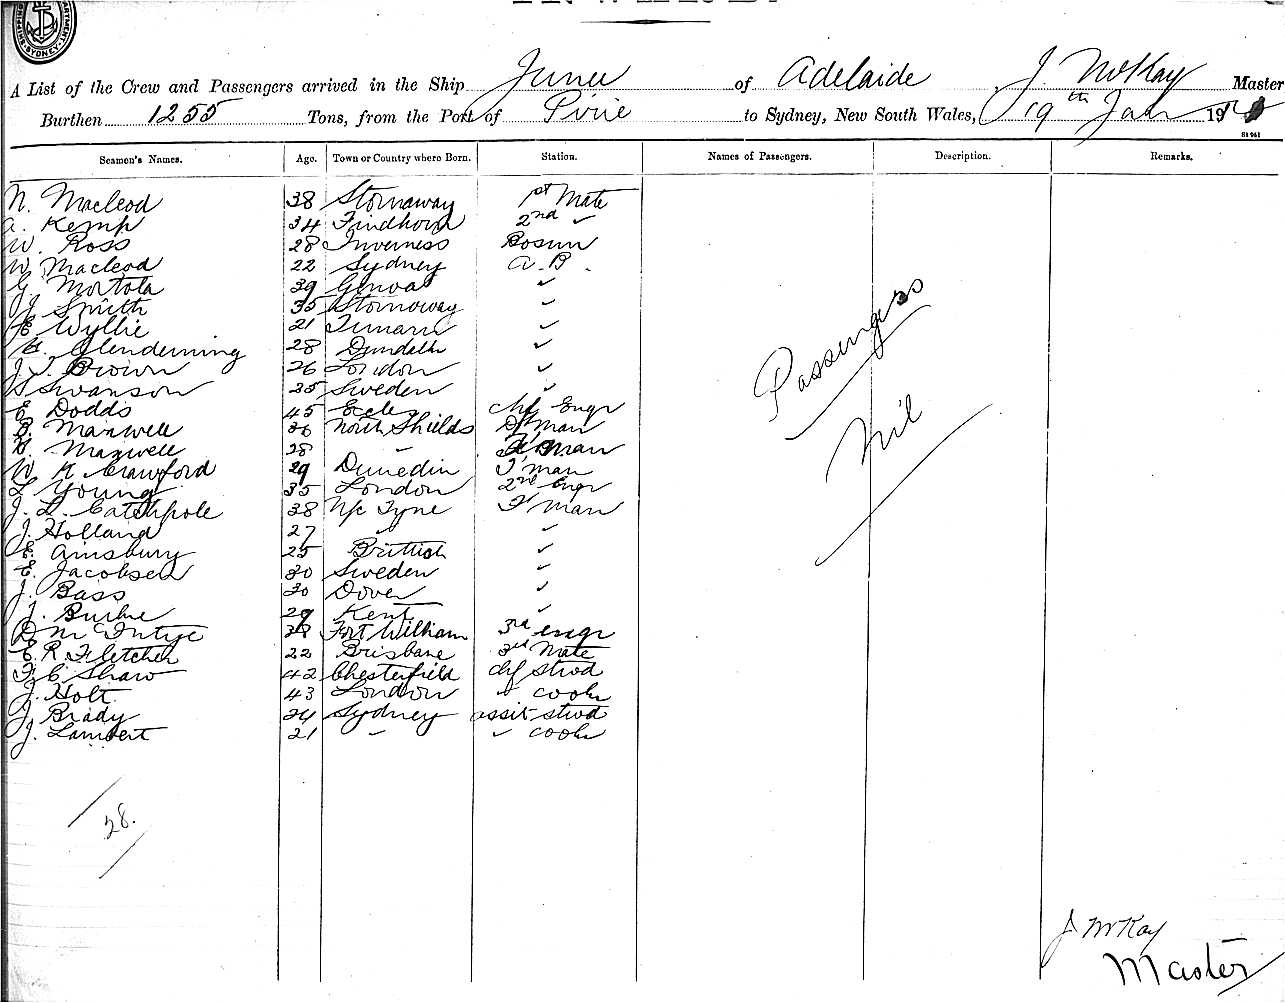 DEPARTMENT. SYDNEY. SHIPPING
A List of the Crew and Passengers arrived in the Ship Junee of Adelaide, J. McKay Master
Burthen 1255 Tons, from the Port of Pirie to Sydney, New South Wales, 19th Jan 19
81961
Seamen's Names. Age. Town or Country where Born. Station. Names of Passengers. Description. Remarks.
N. Macleod 38 Stornaway 1st Mate
A. Kemp 34 Findhorn 2nd ✓
W. Ross 28 Inverness Bosun
W. Macleod 22 Sydney A.B.
G. Mortola 39 Genoa ✓
J. Smith 35 Stornoway ✓
E Wyllie 21 Timaru ✓
Glendenning 28 Dundalk ✓
J. T. Brown 26 London ✓
Swanson 25 Sweden ✓
E Dodds 45 chf Engr
B. Maxwell 36 North Shields D'man
H. Maxwell 28 - F'man
W K Crawford 29 Dunedin F'man
L Young 35 London 2nd Engr
J. L. Catchpole 38 N/c Tyne F'man
J. Holland 27 ✓ ✓
E. Ainsbury 25 British ✓
E. Jacobsen 30 Sweden ✓
J. Bass 30 Dover ✓
J. Burke 29 Kent ✓
D McIntyre 38 Fort William 3rd engr
E. R. Fletcher 22 Brisbane 3rd Mate
F. C. Shaw 42 Chesterfield chf stwd
J. Holt 43 London " cook
J Brady 24 Sydney assit stwd
J. Lambert 21 - " cook
Passengers
Nil
28.
J McKay
Master